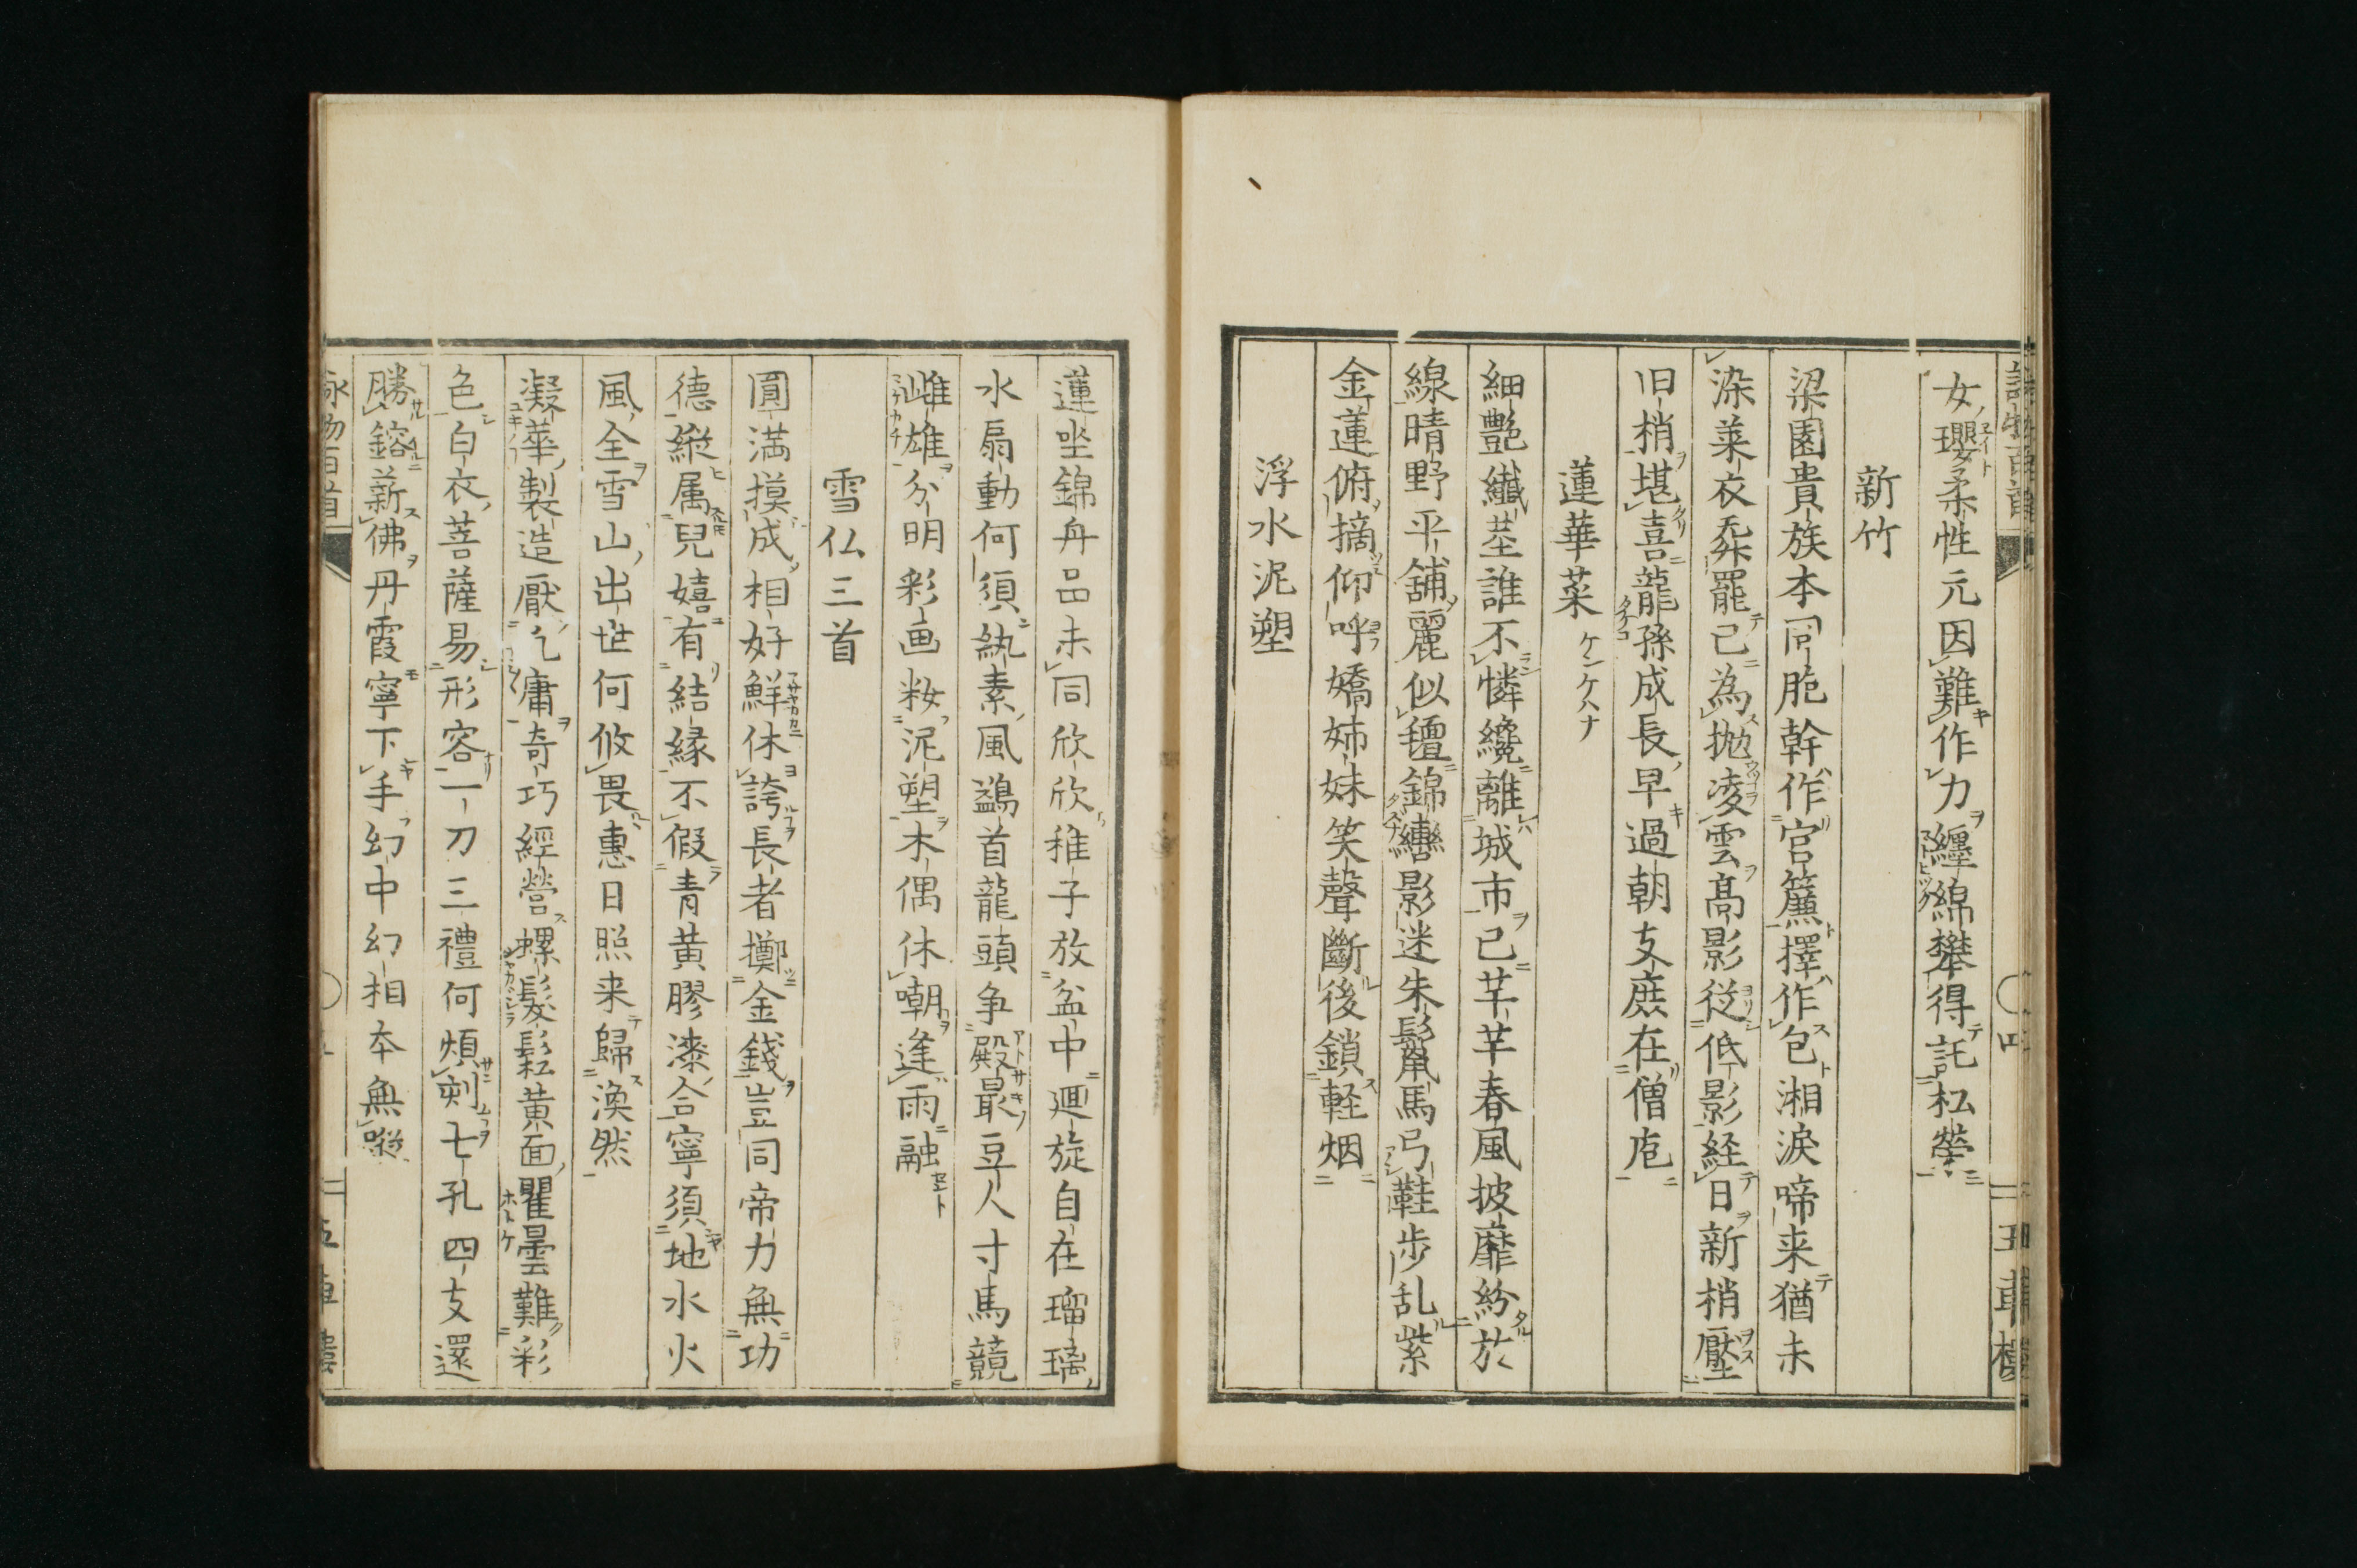 女瓔柔性元因難作力纏綿攀得託松榮
新竹
梁園貴族本同胞幹作官簾擇作包湘淚啼来猶未
染菜衣斈罷已為抛凌雲高影従低影経日新梢壓
旧梢堪喜龍孫成長早過朝支庶在僧庖
蓮華菜 ケンケハナ
細艶繊茎誰不憐纔離城市已芊芊春風披靡紛於
線晴野平舗麗似氊錦轡影迷朱鬣馬弓鞋歩乱紫
金蓮俯摘仰呼嬌姉妹笑聲斷後鎖軽烟
浮水泥塑
蓮坐錦舟品未同欣欣稚子放盆中廻旋自在瑠璃
水扇動何須紈素風鷁首龍頭争殿最豆人寸馬競
雌雄分明彩画粧泥塑木偶休嘲逢雨融
雪仏三首
圓満摸成相好鮮休誇長者擲金錢豈同帝力無功
德縦属兒嬉有結縁不假青黄膠漆合寧須地水火
風全雪山出世何攸畏惠日照来歸渙然
凝華製造厭凡庸奇巧經營螺髮鬆黄面瞿曇難彩
色白衣菩薩易形容一刀三禮何煩刻七孔四支還
勝鎔薪佛丹霞寧下手幻中幻相本無蹤
詠物百首